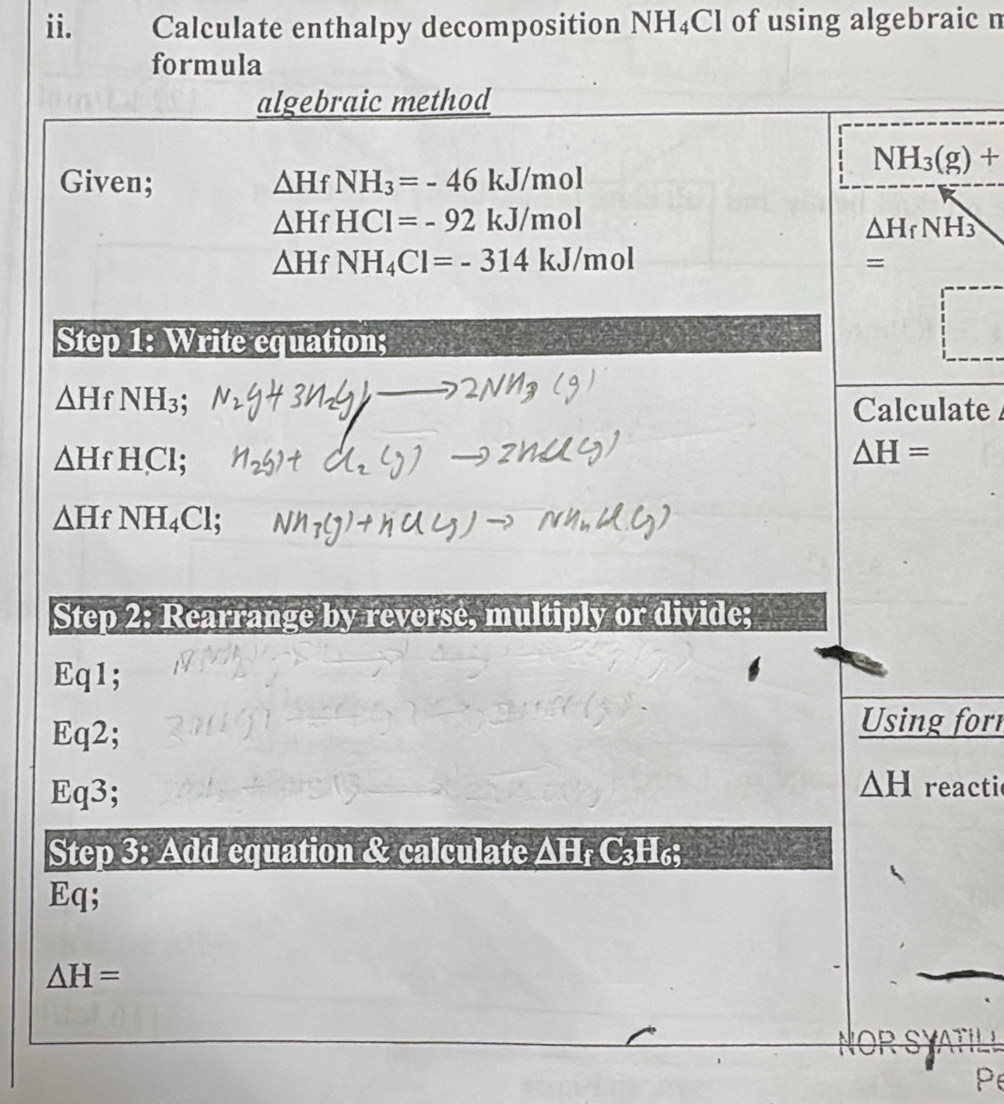 ii. Calculate enthalpy decomposition NH₄Cl of using algebraic
formula
algebraic method
Given; ΔHf NH₃ = - 46 kJ/mol
ΔHf HCl = - 92 kJ/mol
ΔHf NH₄Cl = - 314 kJ/mol
Step 1: Write equation;
ΔHf NH₃; N₂(g) + 3H₂(g) → 2NH₃ (g)
ΔHf HCl; H₂(g) + Cl₂ (g) → 2HCl(g)
ΔHf NH₄Cl; NH₃(g) + HCl(g) → NH₄Cl(g)
Step 2: Rearrange by reverse, multiply or divide;
Eq1;
Eq2;
Eq3;
Step 3: Add equation & calculate ΔHf C₃H₆;
Eq;
ΔH =
NH₃(g) +
ΔHf NH₃
=
Calculate
ΔH =
Using
ΔH
NOR